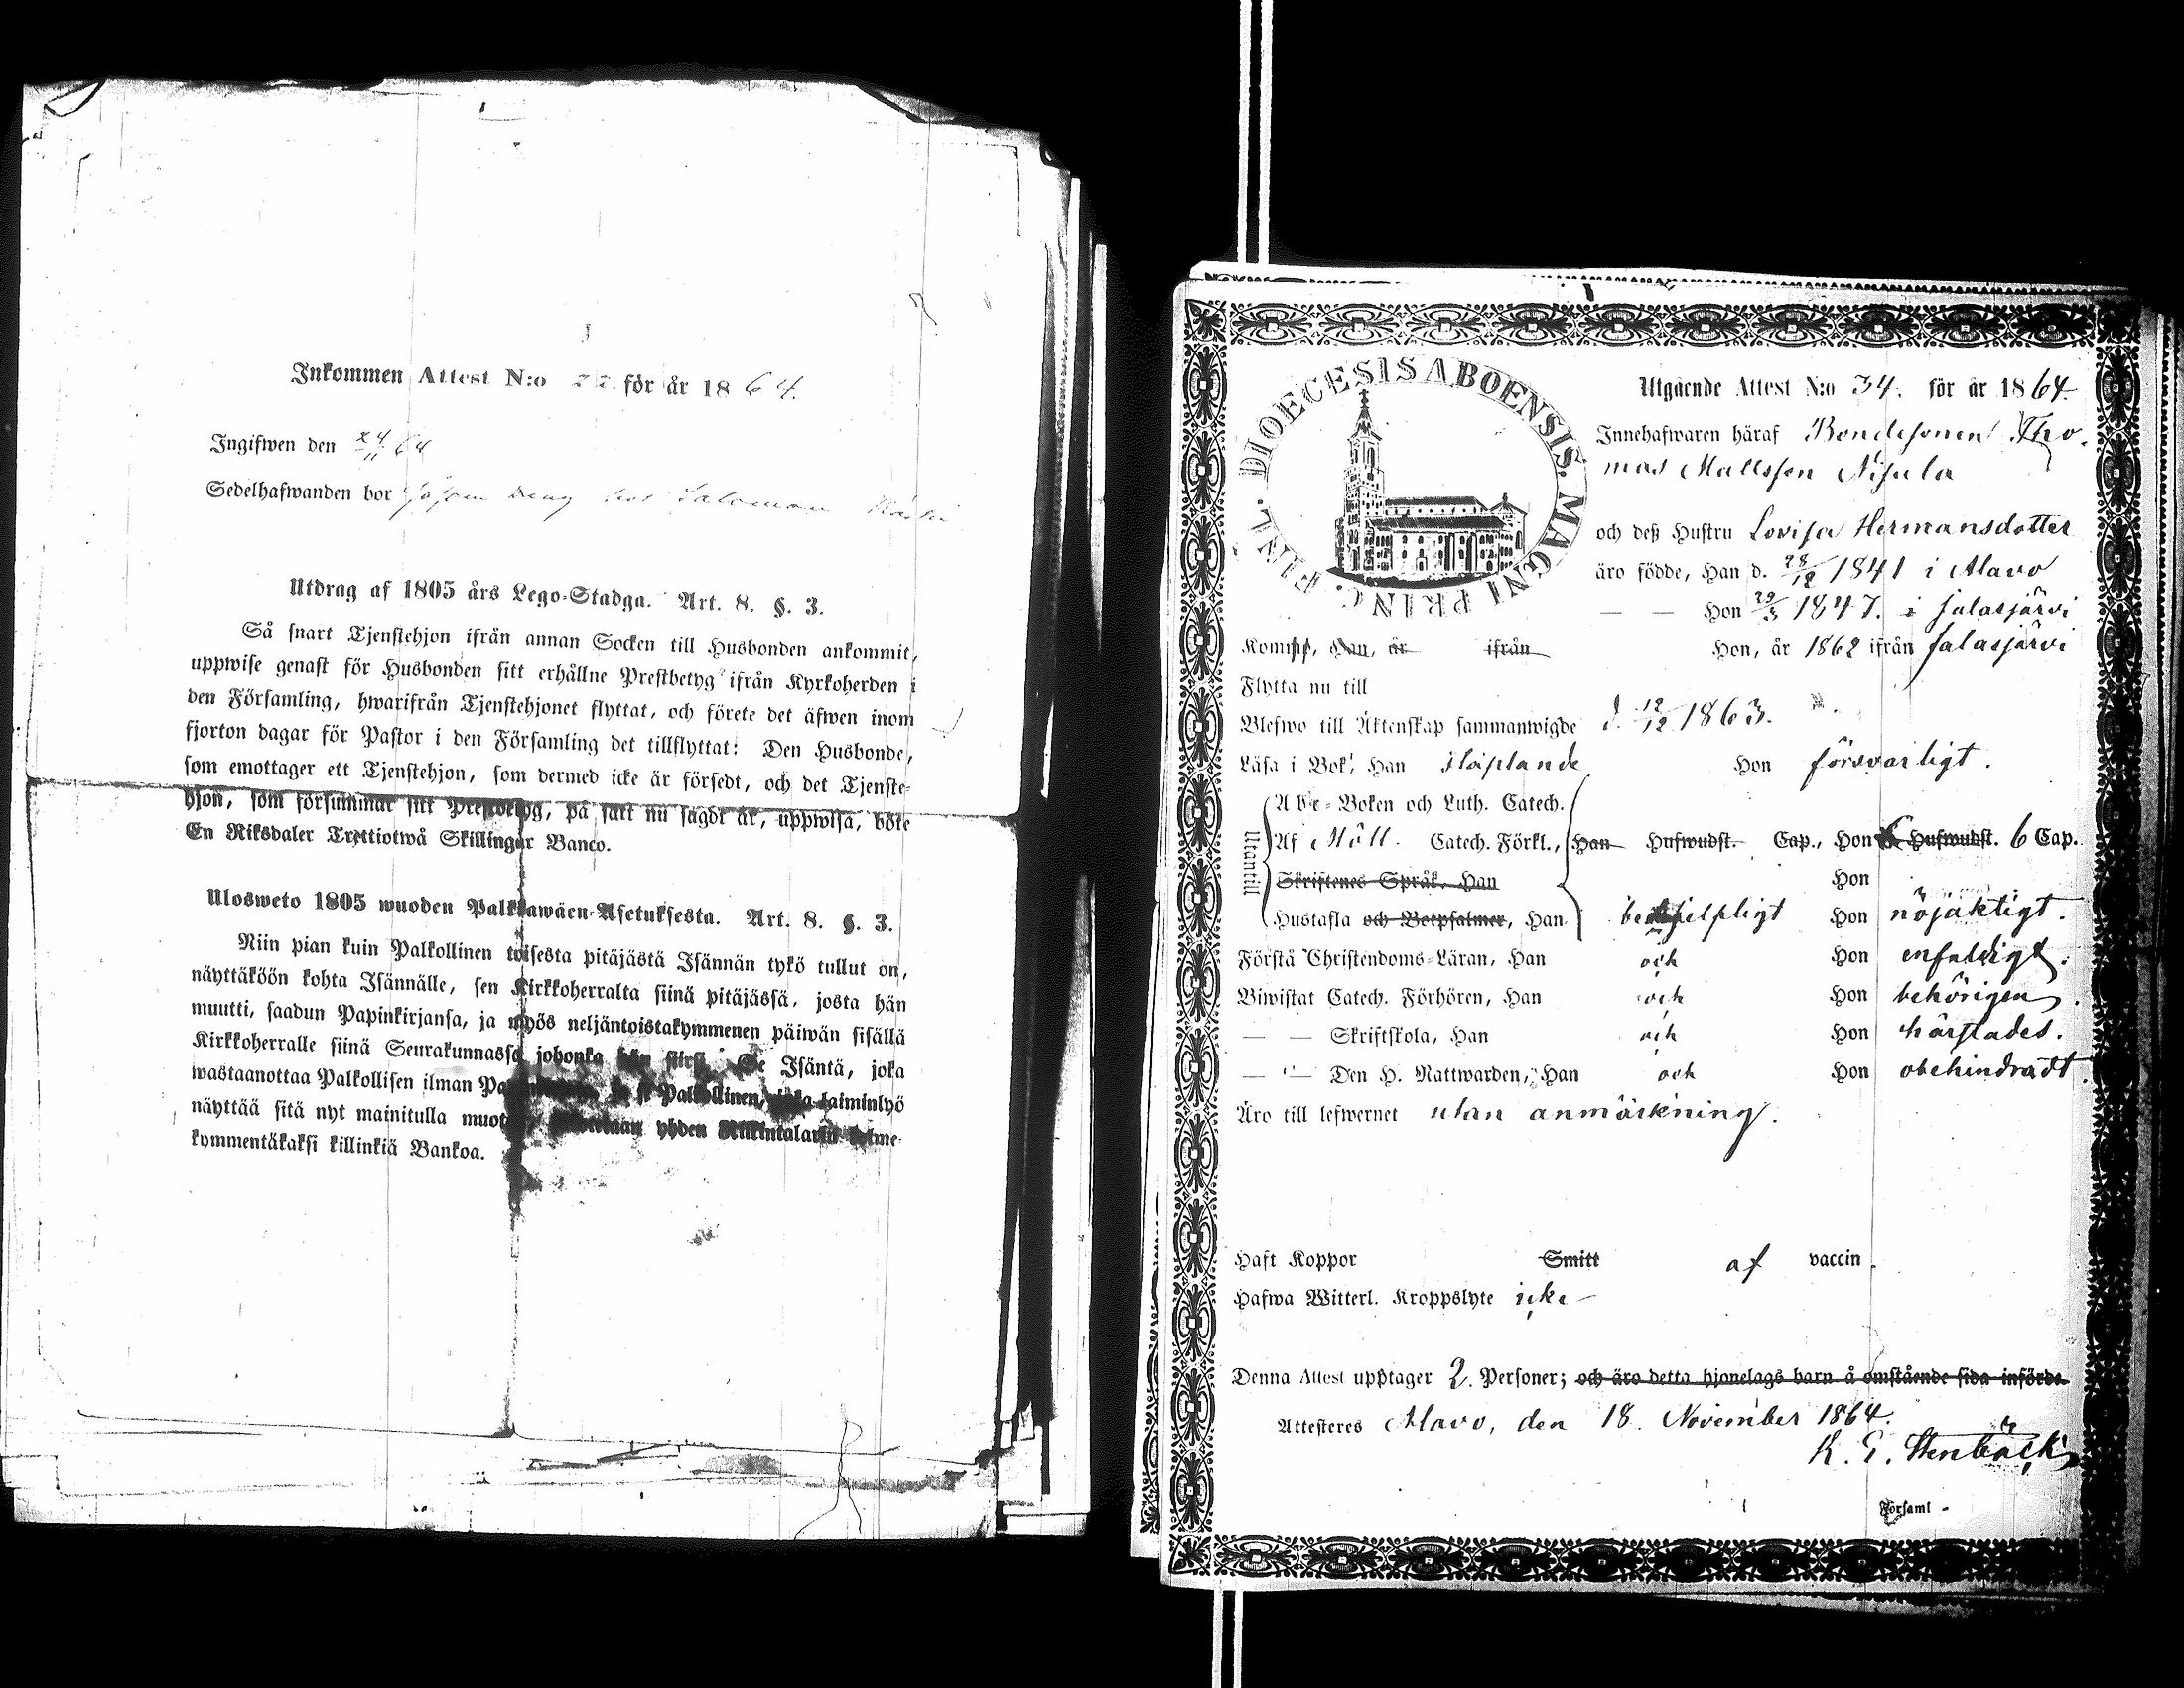 Inkommen Attest N:o 22. för år 1864.
Ingifwen den 24/11 64
Sedelhafwanden bor såsom dräng hos Salomon
Utdrag af 1805 års Lego-Stadga. Art. 8. §. 3.
Så snart Tjenstehjon ifrån annan Socken till Husbonden ankommit,
uppwise genast för Husbonden sitt erhållne Prestbetyg ifrån Kyrkoherden i
den Församling, hwarifrån Tjenstehjonet flyttat, och förete det äfwen inom
fjorton dagar för Pastor i den Församling det tillflyttat: Den Husbonde,
som emottager ett Tjenstehjon, som dermed icke är försedt, och det Tjenste-
hjon, som försummar sitt Prestbetyg, på sätt nu sagdt är, uppwisa, böte
En Riksdaler Trettiotwå Skillingar Banco.
Ulosweto 1805 wuoden Palkkawäen-Asetuksesta. Art. 8. §. 3.
Niin pian kuin Palkollinen toisesta pitäjästä Isännän tykö tullut on,
näyttäköön kohta Isännälle, sen Kirkkoherralta siinä pitäjässä, josta hän
muutti, saadun Papinkirjansa, ja myös neljäntoistakymmenen päiwän sisällä
Kirkkoherralle siinä Seurakunnassa johonka hän siirsi. Se Isäntä, joka
wastaanottaa Palkollisen ilman se Palkollinen, joka laiminlyö
näyttää sitä nyt mainitulla yhden Riikintalarin kolme-
kymmentäkaksi killinkiä Bankoa.
DIOECESIS ABOENSIS. MAGNI PRINC. FINL.
Utgående Attest N:o 34. för år 1864.
Innehafwaren häraf Bondesonen Tho-
mas Mattsson Nisula
och deß Hustru Lovisa Hermansdotter
äro födde, Han d. 28/12 1841 i Alavo
— — Hon 29/3 1847. i Jalasjärvi
Komne, Han, år ifrån Hon, år 1862 ifrån Jalasjärvi
Flytta nu till
Blefwo till Äktenskap sammanwigde d. 12/12 1863.
Läsa i Bok, Han släplande Hon försvarligt.
Utantill
Abc-Boken och Luth. Catech.
Af Möll. Catech. Förkl., Han Hufwudst. Cap., Hon Hufwudst. 6 Cap.
Skriftenes Språk, Han Hon
Hustafla och Botpsalmer, Han behjelpligt Hon nöjaktigt.
Förstå Christendoms-Läran, Han och Hon enfaldigt.
Biwistat Catech. Förhören, Han och Hon behörigen.
— — Skriftskola, Han och Hon härstädes.
— — Den H. Nattwarden, Han och Hon obehindradt.
Äro till lefwernet utan anmärkning.
Haft Koppor Smitt af vaccin.
Hafwa Witterl. Kroppslyte icke
Denna Attest upptager 2. Personer; och äro detta hjonelags barn å omstående sida införde.
Attesteres Alavo, den 18. November 1864.
K. E. Stenbäck
Församl -